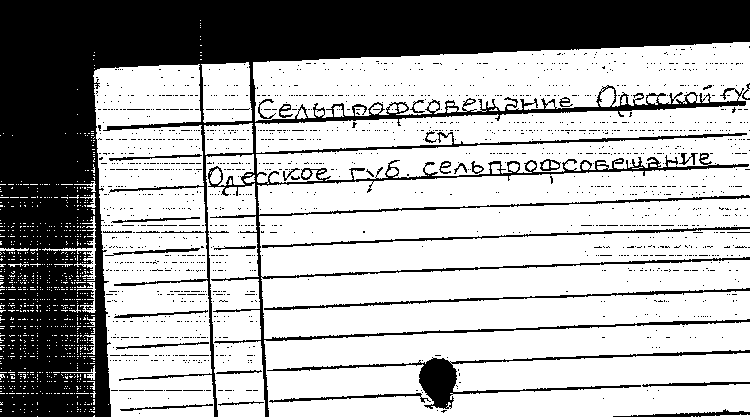 Сельпрофсовещание Одесской губ
см.
Одесское губ. сельпрофсовещание